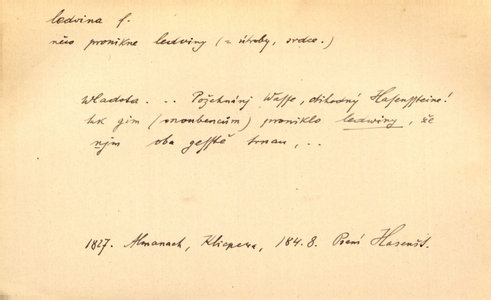 ledvina f.
něco pronikne ledviny (= útroby, srdce.)
Wladota . . . Požehnánj Wasse, důhodný Hasenssteine!
tak gim (snoubencům) proniklo ledwiny, že
nym oba gesstě trnau, . .
1827. Almanach, Klicpera, 184.8. Psaní Hasenšt.